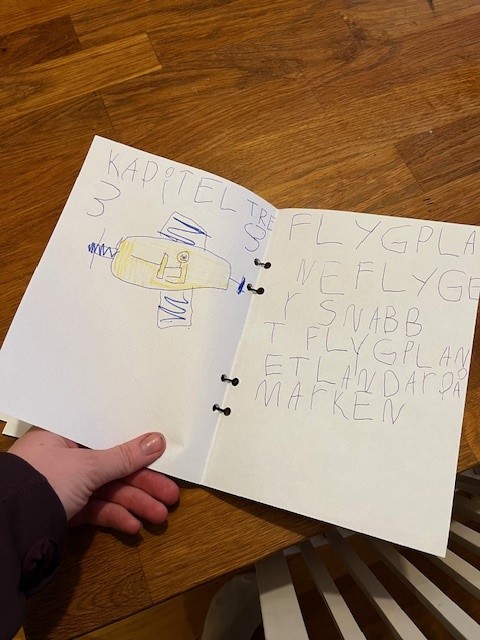 KAPITEL TRE
3
FLYGPLA
NE FLYGE
r SNABB
T FLYGPLAN
ET LANDAr På
MARKEN